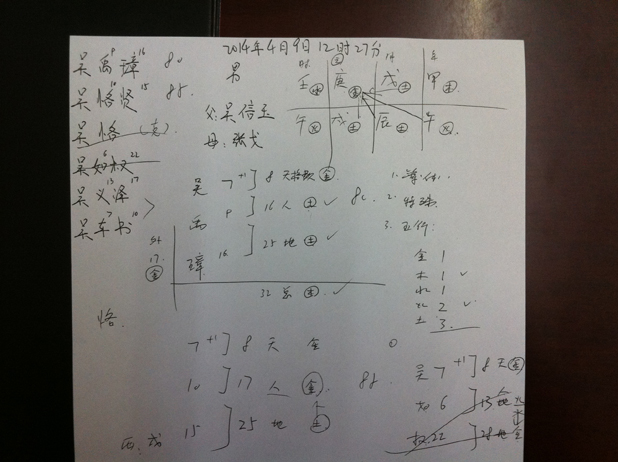 2014年4月9日12时27分
男
父:吴信玉
母:张戈
吴禹璋 9 16 80
吴恪贤 10 15 85
吴恪
吴如权 6 22
吴义泽 13 17
吴车书 7 10
时 日 月 年
壬水 庚金 戊土 甲木
午火 戌土 辰土 午火
吴 7 +1 8 天 金
禹 9 16 人 土 ✓
璋 16 25 地 土 ✓
外 17 金
32 总 木 ✓
80
2. 特殊
3. 五行:
金 1
木 1 ✓
水 1
火 2 ✓
土 3
恪
7 +1 8 天 金
10 17 人 金 88
15 25 地 土
吴 7 +1 8 天 金
如 6 13 人 火
权 22 28 地 金